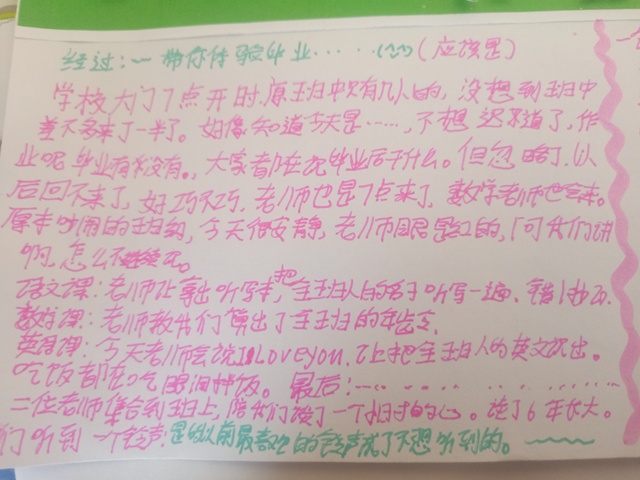 经过:一带你体验毕业......(应该是)
学校大门7点开时.原班中只有几人的，没想到班中
差不多来了一半了。好像知道今天是......,不想迟不道了,作
业呢毕业有和没有。,大家都在说毕业后干什么。但忽略了.以
后回不来了,好巧不巧.老师也是7点来了,数学老师也会来。
原本吵闹的班级,今天很安静,老师眼眶是红的,「可我们讲
啊,怎么不继续
语文课:老师让拿出听写本,把全班人的名字听写一遍、错1抄
数学课:老师教我们算出了全班的年龄
英语课:今天老师会说I Love you.让把全班人的英文说出。
吃饭都在吃眼泪拌饭。最后:
二位老师集合到班上,陪我们 了一个 的心。 了6年长大。
们听到一个铃声:是以前最喜欢的铃声成了不想听到的。